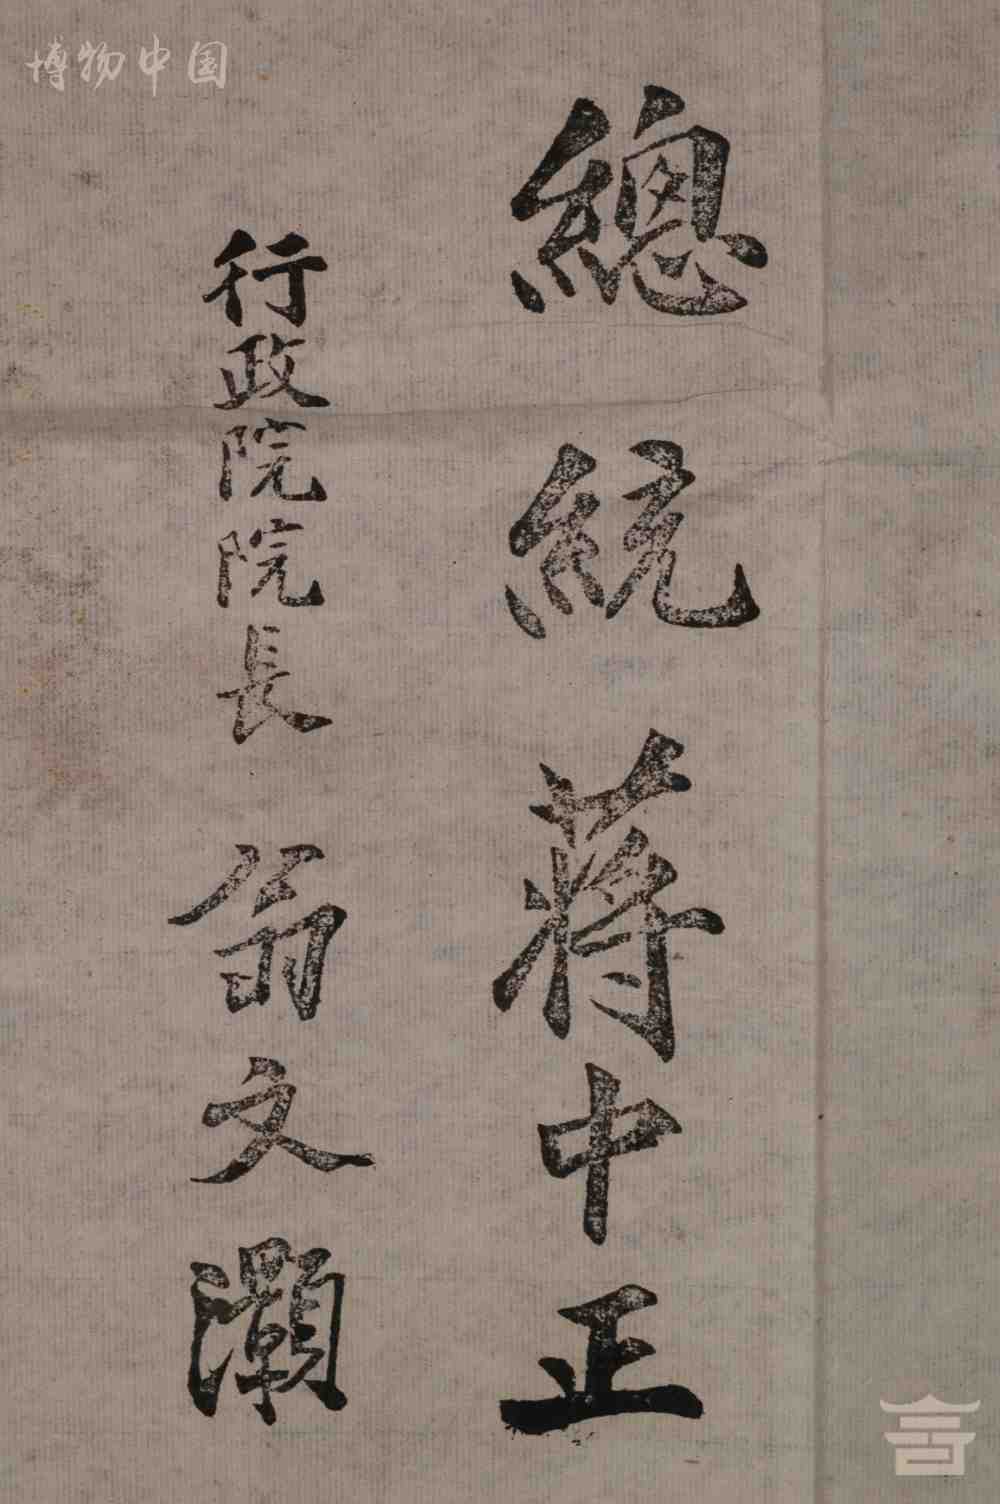 博物中国
總統蔣中正
行政院院長 翁文灝